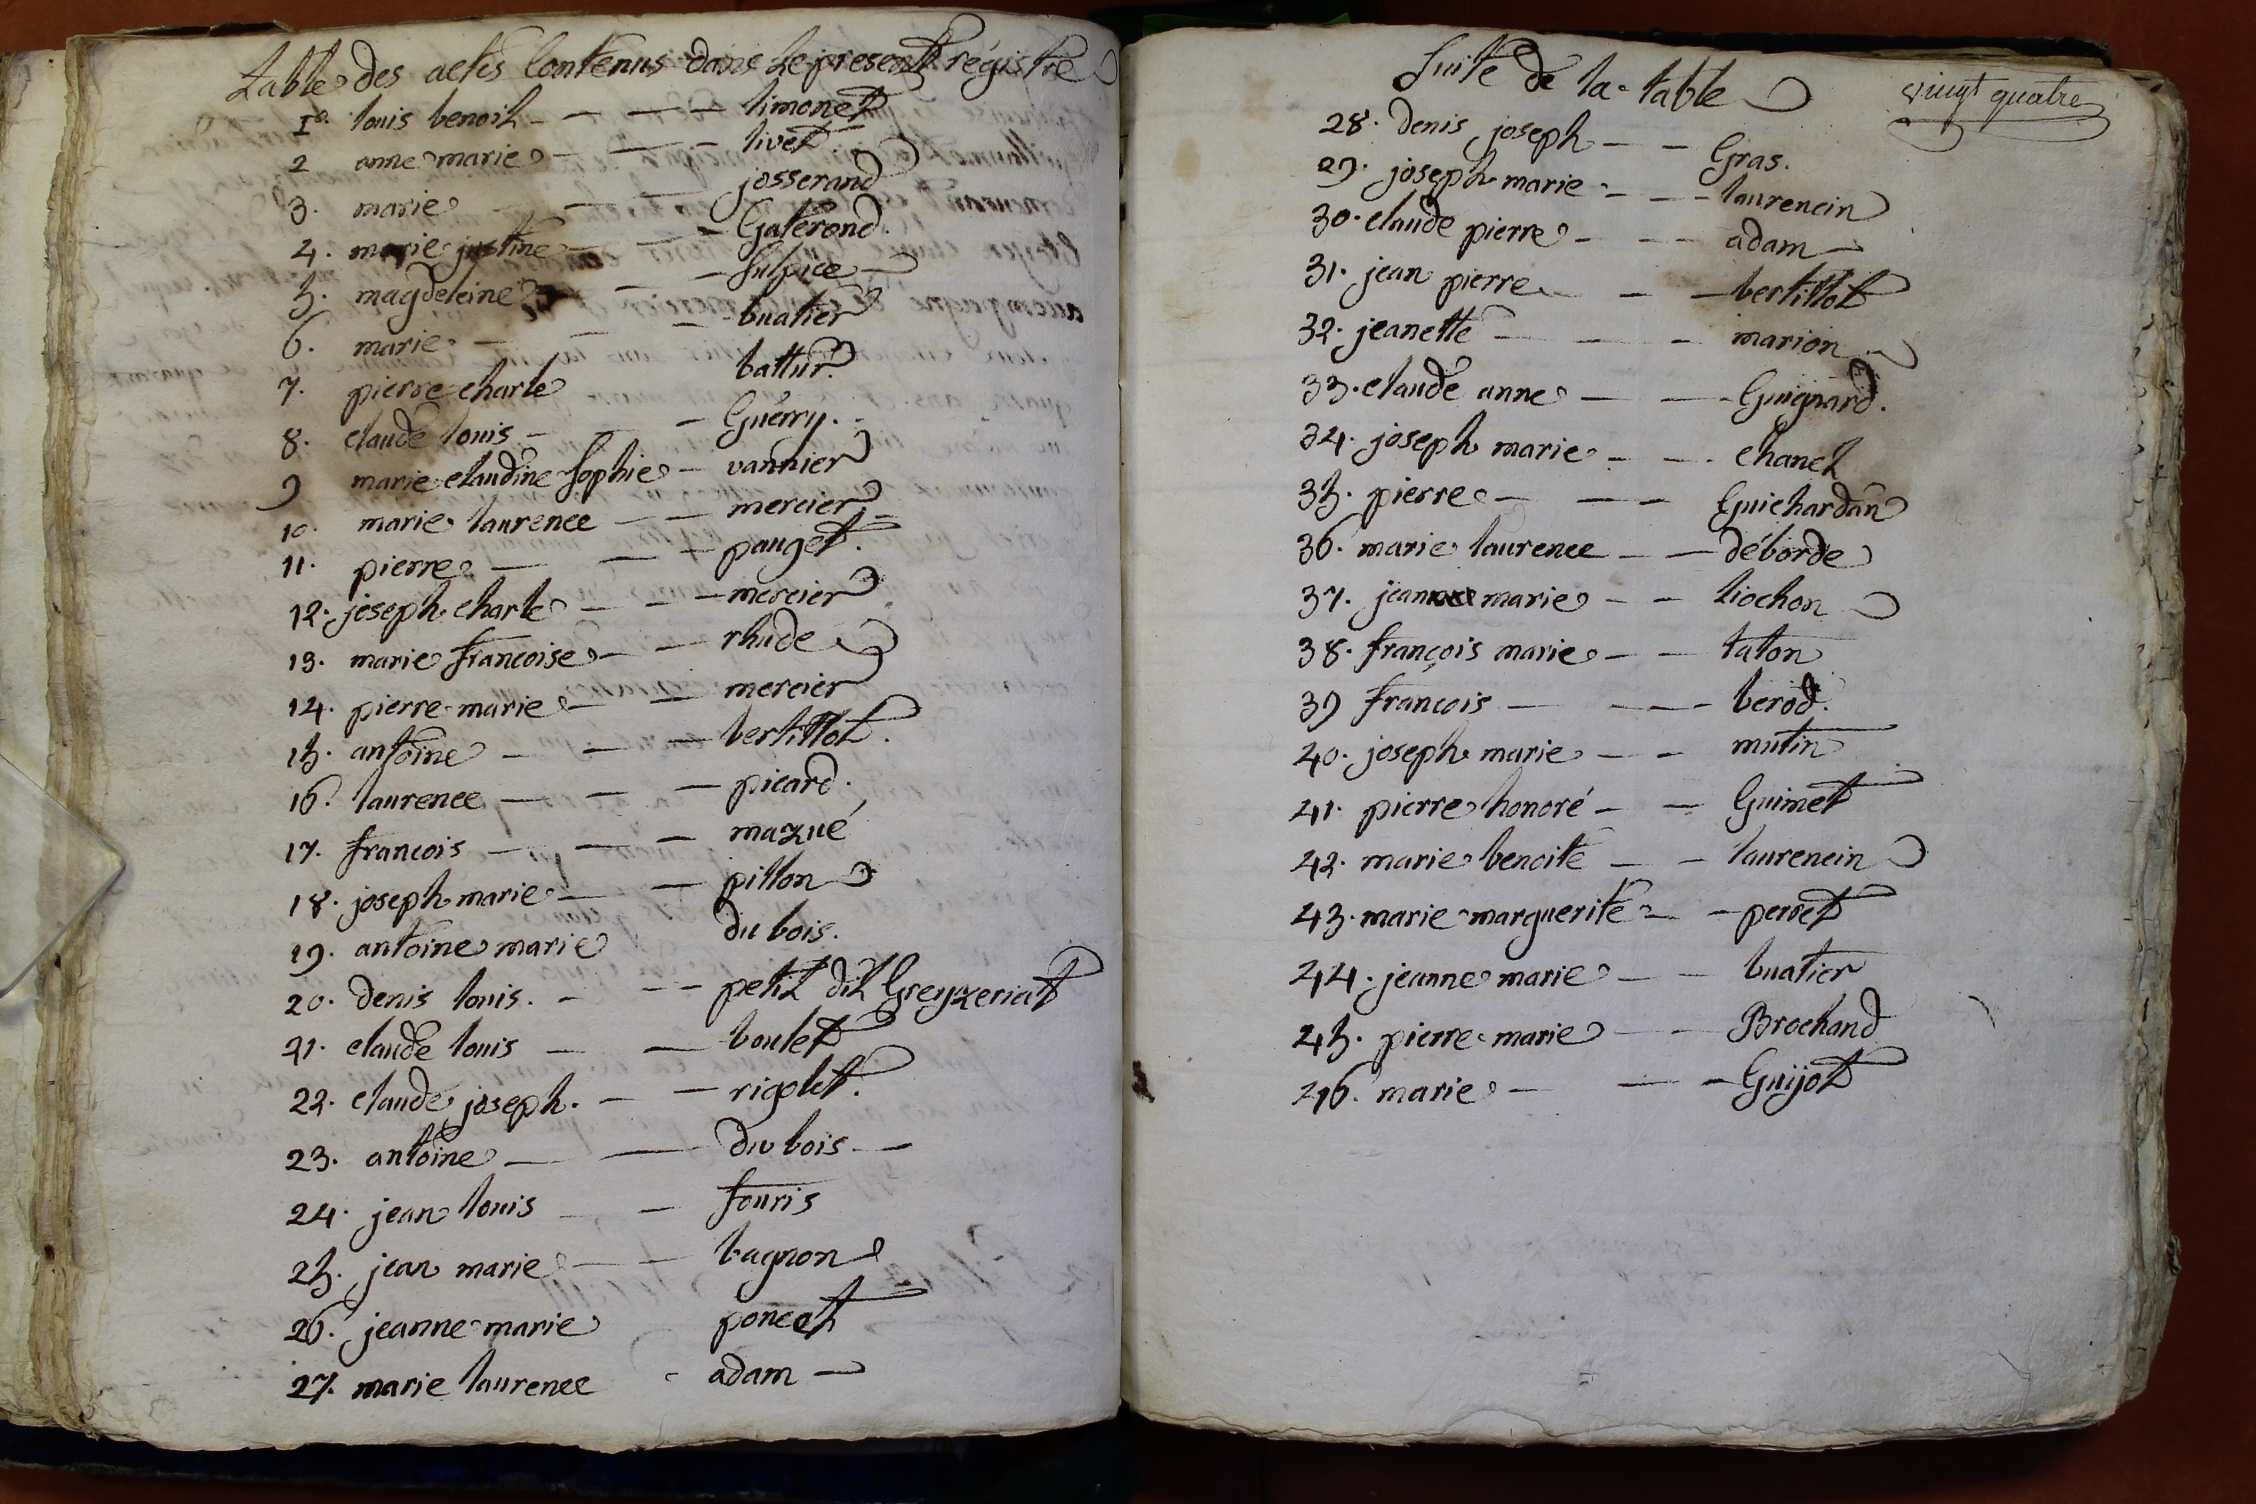 table des actes Contenus dans Le present régistre
1º. louis benoit - - - limonet
2 anne marie - - - livet.
3. marie - - josserand
4. marie justine - - - Gaterond.
5. magdeleine - - Sulpice -
6. marie - - - buatier
7. pierre charle battur.
8. claude louis - - - Guérry.
9 marie claudine Sophie - vannier
10. marie laurence - - mercier
11. pierre - - - pauget.
12. joseph charle - - - mercier
13. marie francoise - - rhude
14. pierre marie - - mercier
15. antoine - - - bertillot.
16. laurence - - - picard.
17. francois - - - mazué
18. joseph marie - - pillon
19. antoine marie du bois.
20. denis louis. - - - petit dit Greyzeriat
21. claude louis - - boulet
22. claude joseph. - - rigolet.
23. antoine - - du bois -
24. jean louis - - fouris
25. jean marie - - bagnon
26. jeanne marie poncet
27. marie laurence - adam -
Suite de la table
vingt quatre
28. denis joseph - - Gras.
29. joseph marie - - - laurencin
30. claude pierre - - - adam -
31. jean pierre - - - bertillot
32. jeanette - - - marion
33. claude anne - - Guignard.
34. joseph marie - - chanel
35. pierre - - - Guichardan
36. marie laurence - - déborde
37. jeanne marie - - Liochon
38. françois marie - - taton
39 francois - - - - berod.
40. joseph marie - - mutin
41. pierre honoré - - Guimet
42. marie benoite - - laurencin
43. marie marguerite - - perret
44. jeanne marie - - buatier
45. pierre marie - - Brochand
46. marie - - - Guijot